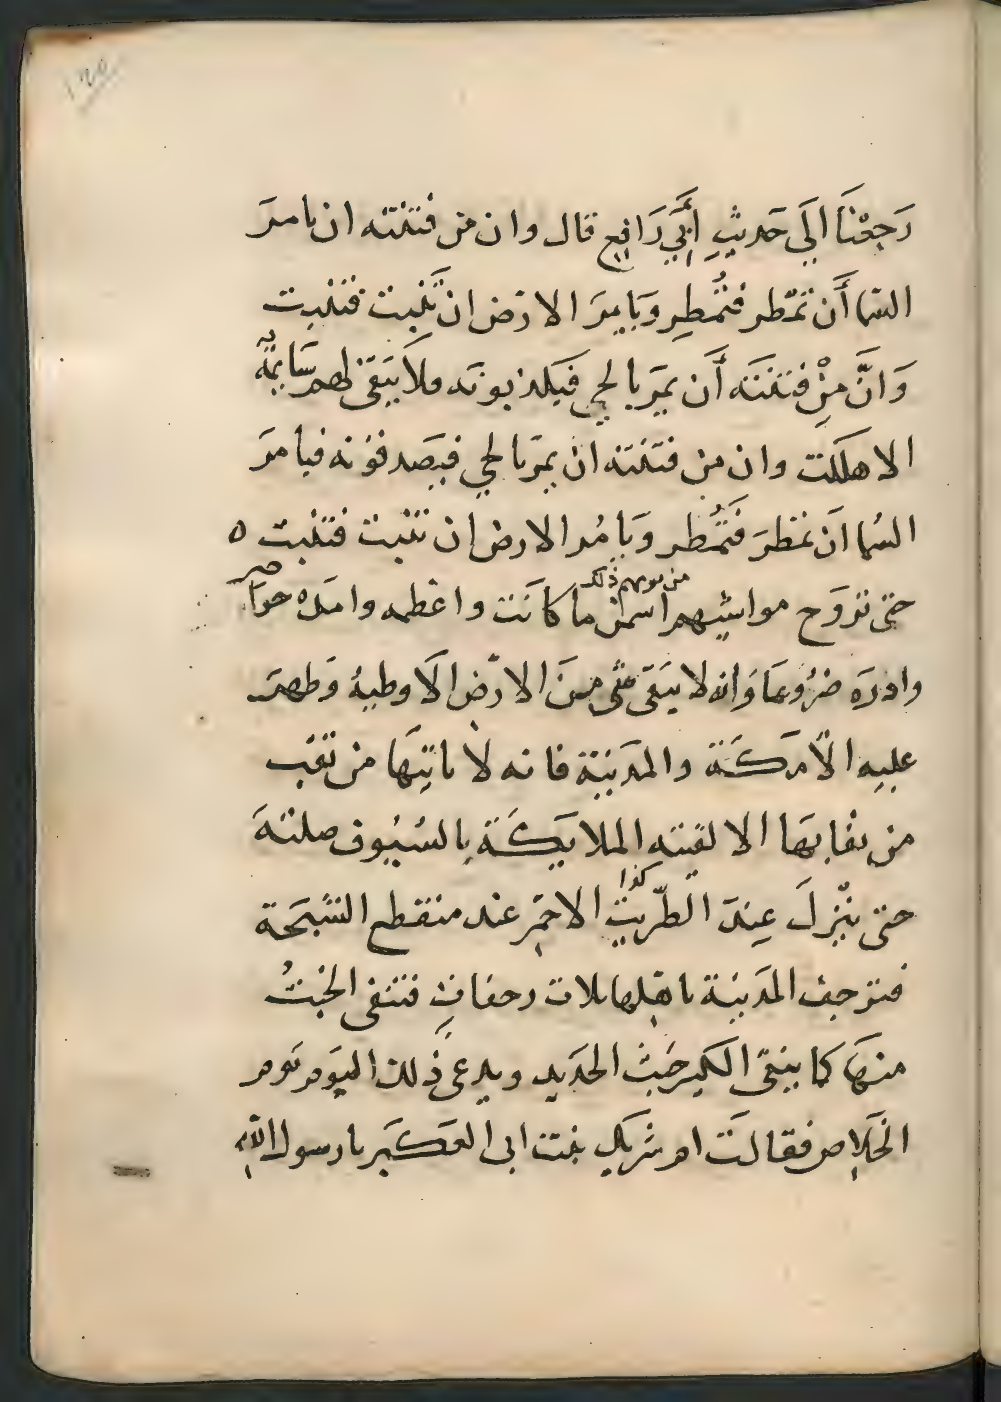 ١٢٥
رَجَعْنَا الَي حَديثِ أَبَي رَافِعٍ قال وان من فتنته ان يامرَ
السّما أَن تمّطر فتُمْطِر وَيَامِرَ الارض ان تَنبت فتنبت
وَانَّ مِنْ فتنته أَن يمَر بالحي فيَكذبونه فلا يَبقَى لهم سَايمةٌ
الا هلكت وان من فتنته ان يمرَ بالحي فيصَدقونه فيامرَ
السُما انَ تمَطرَ فَتُمْطر وَيامُر الارض ان تنبت فتنبت ٥
من يومهم ذلك
حتى تروَح مواشيهم اسمن ما كانَت واعظمه وامَده خواصر
وادره ضرُوعا وَانه لا يبَقى شي مِنَ الارَض الاَ وطيهُ وَظهرَ
عليه الاَ مَكَةَ والمدَينة فانه لا ياتيَها من نقب
من نقابهَا الا لقيته الملايكَة بالسُيُوف صلتةَ
كذا
حتى ينْزلَ عِندَ الظّريبِ الاحمَر عند منقطع السَّبَخة
فترجف المدَينة باهلها ثلاث رجفاتٍ فتنفى الخبثُ
منهَا كما ينفى الكير خبَث الحدَيد ويدعى ذَلك اليوَم يَوم
الخَلاص فقالَت ام شريك بنت ابى العَكَر يا رسول الله